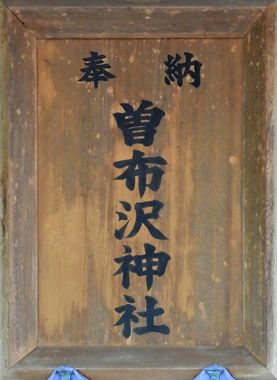 奉納
曽布沢神社